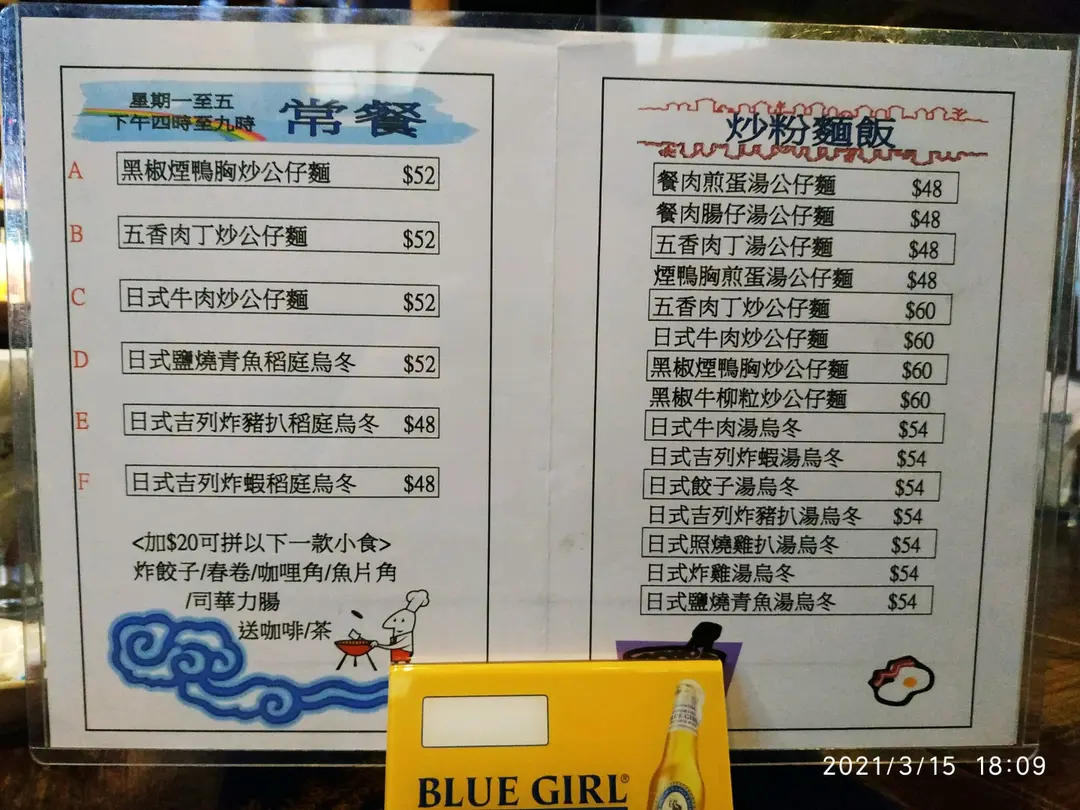 星期一至五
下午四時至九時
常餐
A 黑椒煙鴨胸炒公仔麵 $52
B 五香肉丁炒公仔麵 $52
C 日式牛肉炒公仔麵 $52
D 日式鹽燒青魚稻庭烏冬 $52
E 日式吉列炸豬扒稻庭烏冬 $48
F 日式吉列炸蝦稻庭烏冬 $48
<加$20可拼以下一款小食>
炸餃子/春卷/咖哩角/魚片角
/司華力腸
送咖啡/茶
炒粉麵飯
餐肉煎蛋湯公仔麵 $48
餐肉腸仔湯公仔麵 $48
五香肉丁湯公仔麵 $48
煙鴨胸煎蛋湯公仔麵 $48
五香肉丁炒公仔麵 $60
日式牛肉炒公仔麵 $60
黑椒煙鴨胸炒公仔麵 $60
黑椒牛柳粒炒公仔麵 $60
日式牛肉湯烏冬 $54
日式吉列炸蝦湯烏冬 $54
日式餃子湯烏冬 $54
日式吉列炸豬扒湯烏冬 $54
日式照燒雞扒湯烏冬 $54
日式炸雞湯烏冬 $54
日式鹽燒青魚湯烏冬 $54
BLUE GIRL
BLUE GIRL®
2021/3/15 18:09